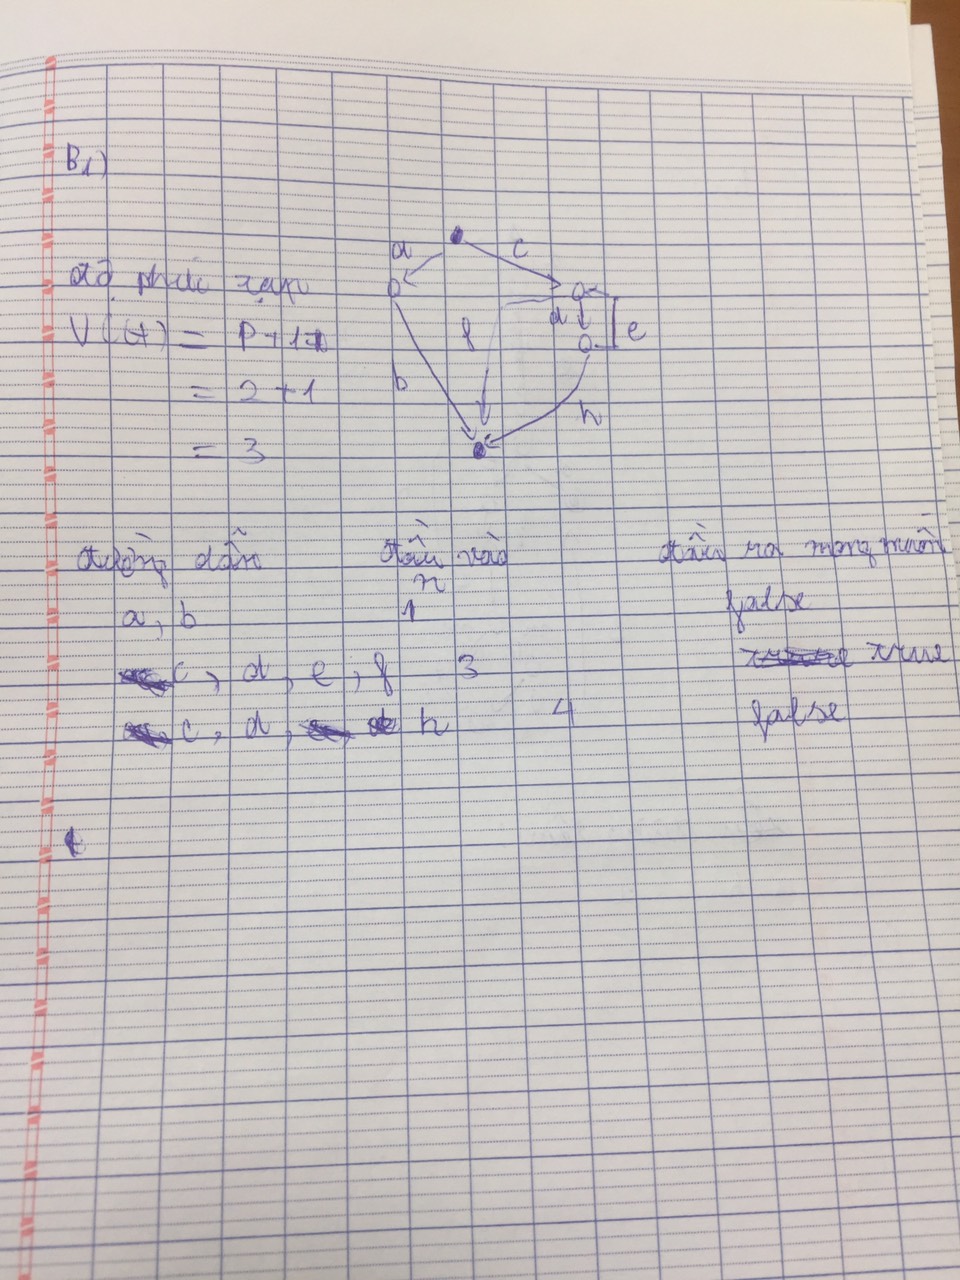 B1)
a
c
độ phức tạp
V(G) = P + 1
f
d
e
= 2 + 1
b
h
= 3
đường dẫn đầu vào đầu ra mong muốn
n
a, b 1 false
c, d, e, f 3 true
c, d, h 4 false